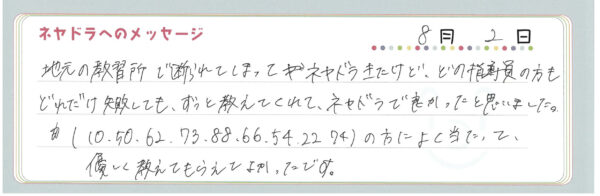 ネヤドラへのメッセージ
8月 2日
地元の教習所で断られてしまってネヤドラきたけど、どの指導員の方も
どれだけ失敗しても、ずっと教えてくれて、ネヤドラで良かったと思いました。
(10.50.62.73.88.66.54.22 74)の方によく当たって、
優しく教えてもらえてよかったです。